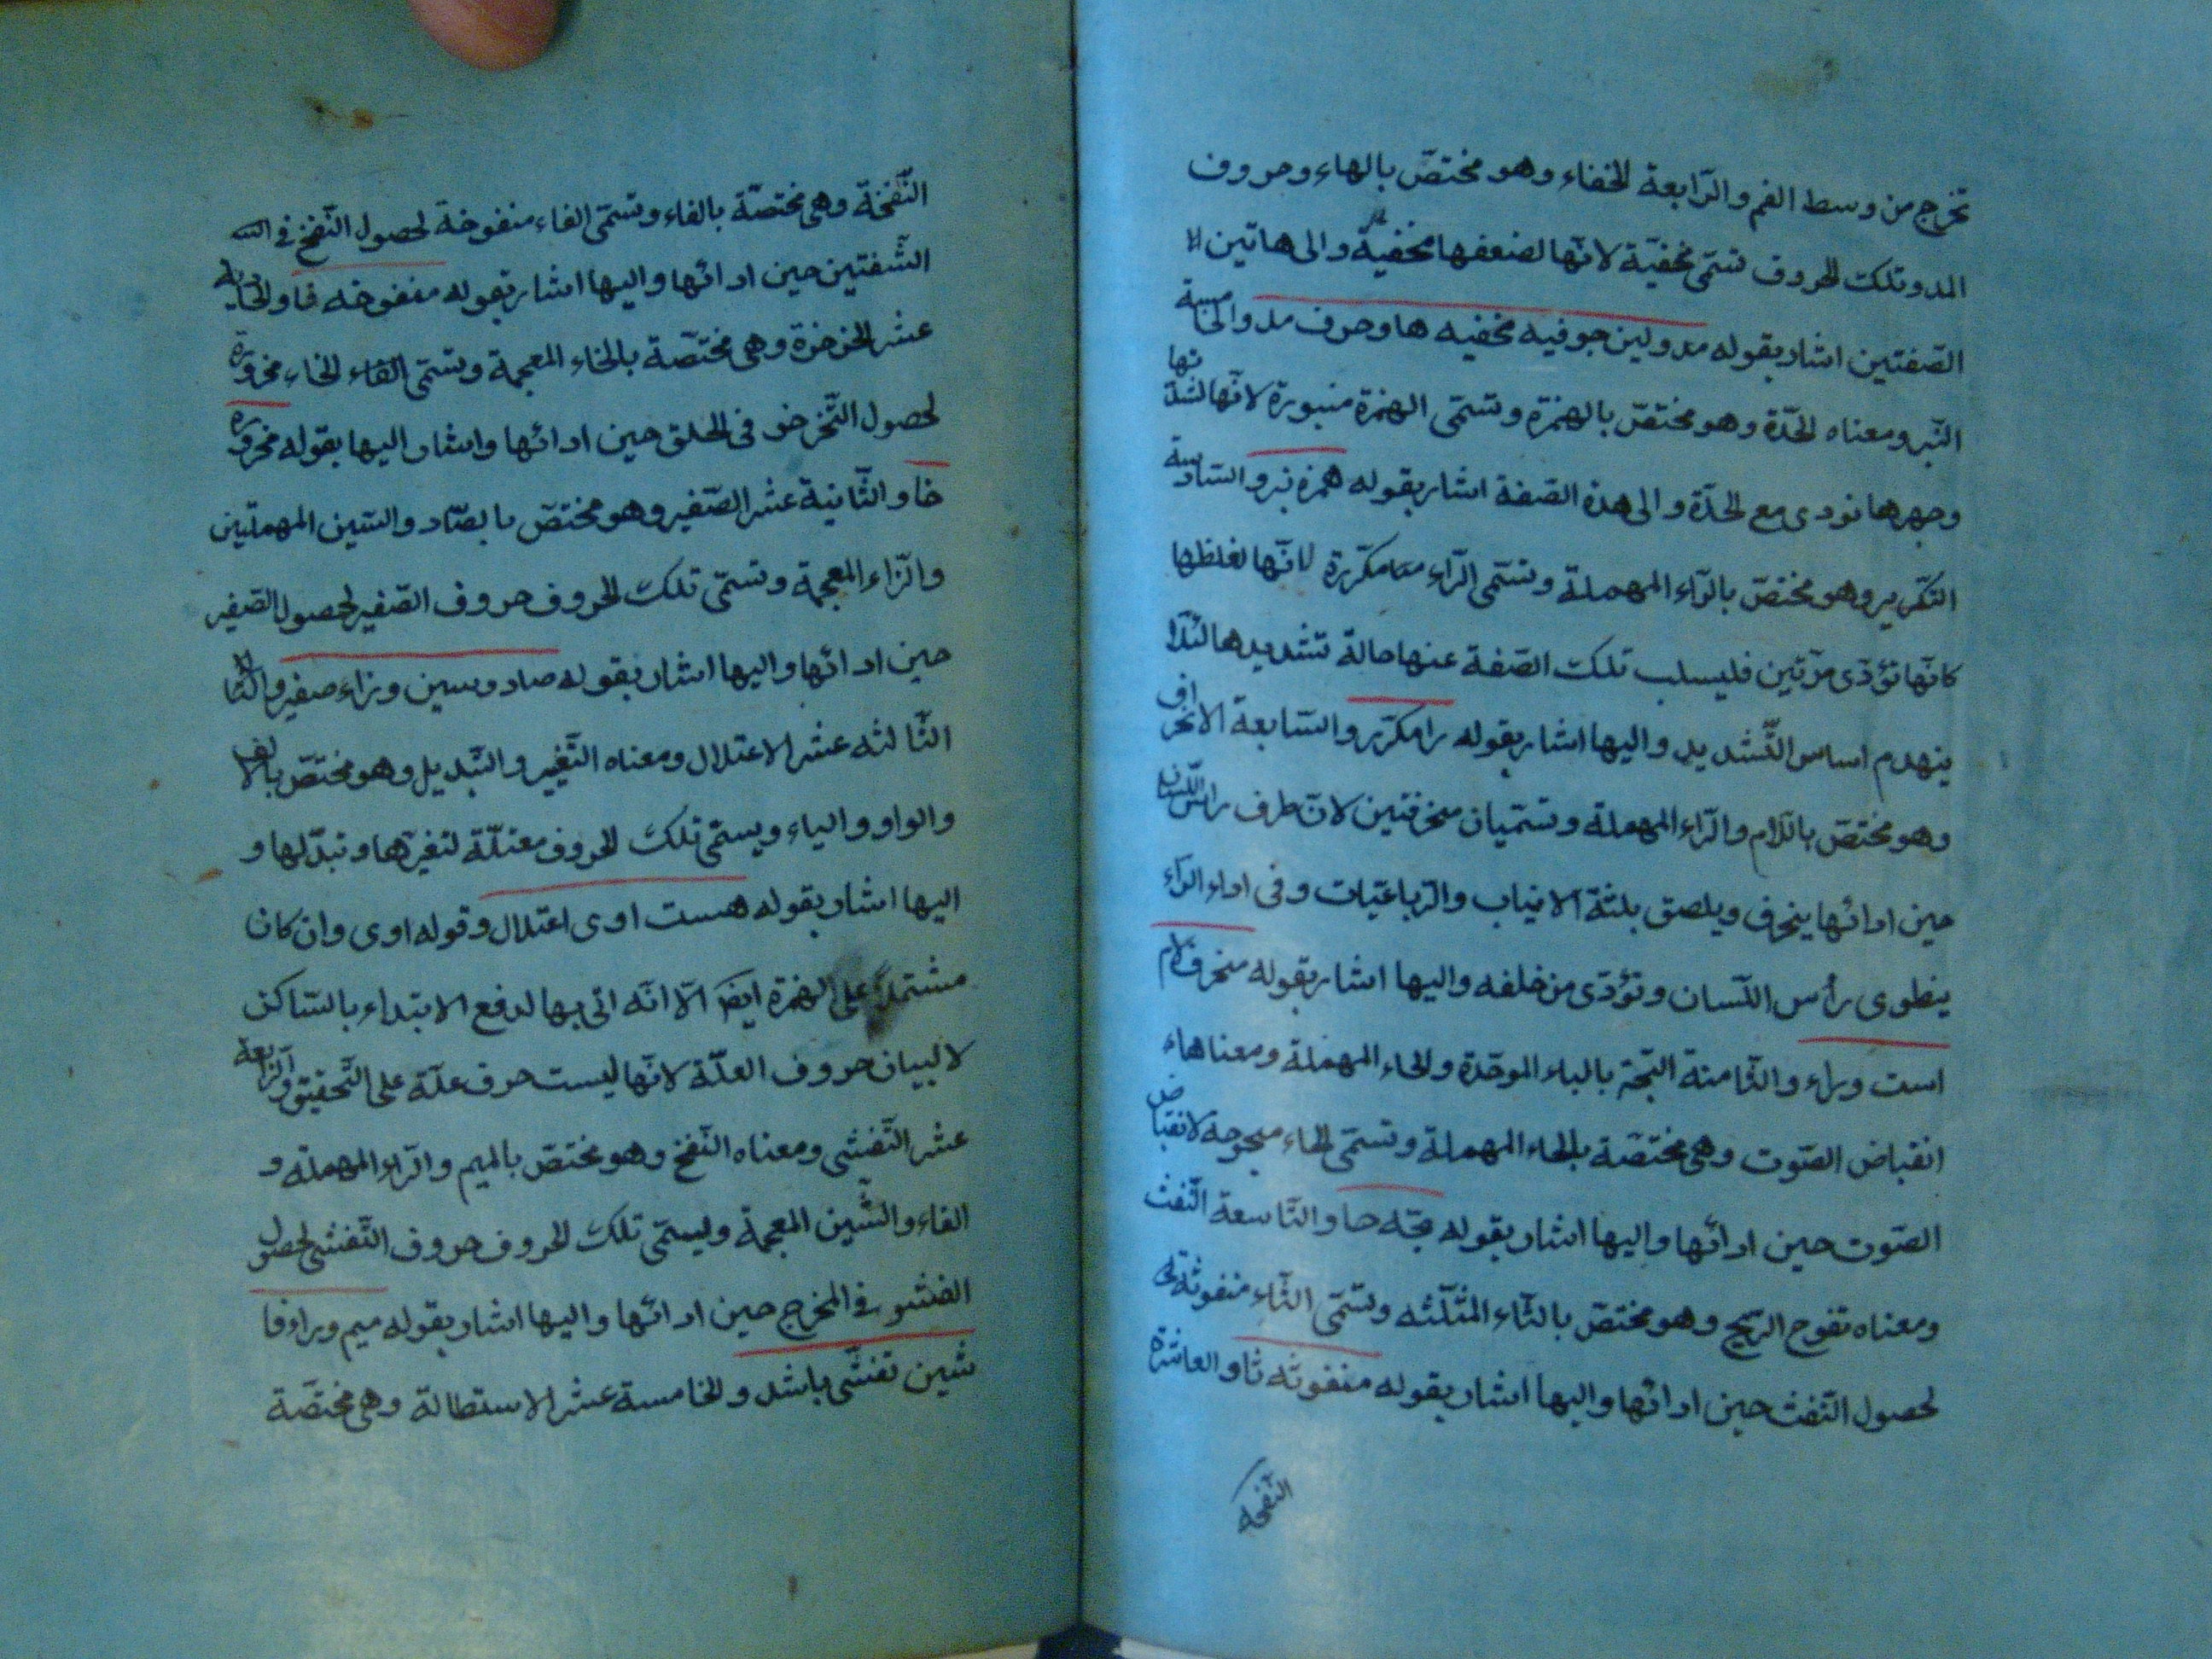 تخرج من وسط الفم والرّابعة الخفاء وهو مختصّ بالهاء وحروف
المد وتلك الحروف تسمّى مخفيّة لانّها لضعفها مخفية والى هاتين
الصّفتين اشار بقوله مد ولين جوفيه مخفيه ها وحرف مد والخامسة
النّبر ومعناه الحدّة وهو مختصّ بالهمزة وتسمّى الهمزة منبورة لانّها لشدّتها
وجهرها تودى مع الحدّة والى هذه الصّفة اشار بقوله همزه نبر والسّادسة
التكّرير وهو مختصّ بالرّاء المهملة وتسمّى الرّاء مكرّرة لانّها لغلظها
كانّها تؤدّى مرّتين فليسلب تلك الصّفة عنها حالة تشديدها لئلّا
ينهدم اساس التّشديد واليها اشار بقوله را مكرّر والسّابعة الانحراف
وهو مختصّ باللّام والرّاء المهملة وتسمّيان منحرفتين لانّ طرف راس اللّسان
حين ادائها ينحرف ويلصق بلثة الانياب والرّباعيّات وفى اداء الرّاء
ينطوى رأس اللّسان وتؤدّى من خلفه واليها اشار بقوله منحرف لام
است وراء والثّامنة البّحّة بالباء الموحّدة والحاء المهملة ومعناها
انقباض الصّوت وهى مختصّة بالحاء المهملة وتسمّى الحاء مبحوحه لانقباض
الصّوت حين ادائها واليها اشار بقوله بحّه حا والتّاسعة النّفث
ومعناه تفوح الرّيح وهو مختصّ بالثّاء المثلّثه وتسمّى الثّاء منفوثة
لحصول النّفث حين ادائها واليها اشار بقوله منفوثه ثا والعاشرة
النّفخة
النّفخة وهى مختصّة بالفاء وتسمّى الفاء منفوخة لحصول النّفخ فى
الشّفتين حين ادائها واليها اشار بقوله منفوخه فا والحادية
عشر الخرخرة وهى مختصّة بالخاء المعجمة وتسمّى الخاء مخرورة
لحصول التّخرخر فى الحلق حين ادائها واشار اليها بقوله مخروره
خا والثّانية عشر الصّفير وهو مختصّ بالصّاد والسّين المهملتين
والزّاء المعجمة وتسمّى تلك الحروف حروف الصّفير لحصول الصّفير
حين ادائها واليها اشار بقوله صاد وسين وزاء صفير
الثّالثه عشر الاعتلال ومعناه التّغيير والتّبديل وهو مختصّ بالالف
والواو والياء ويسمّى تلك الحروف معتلّة لتغيّرها وتبدّلها و
اليها اشار بقوله هست اوى اعتلال وقوله اوى وان كان
مشتملا على الهمزة ايضا الّا انّه اتى بها لدفع الابتداء بالسّاكن
لا لبيان حروف العلّة لانّها ليست حرف علّة على التّحقيق والرّابعة
عشر التّفشى ومعناه النّفخ وهو مختصّ بالميم والرّاء المهملة و
الفاء والشّين المعجمة ويسمّى تلك الحروف حروف التّفشى لحصول
الفشو فى المخرج حين ادائها واليها اشار بقوله ميم وراو فا
شين تفشّى باشد والخامسة عشر الاستطالة وهى مختصّة